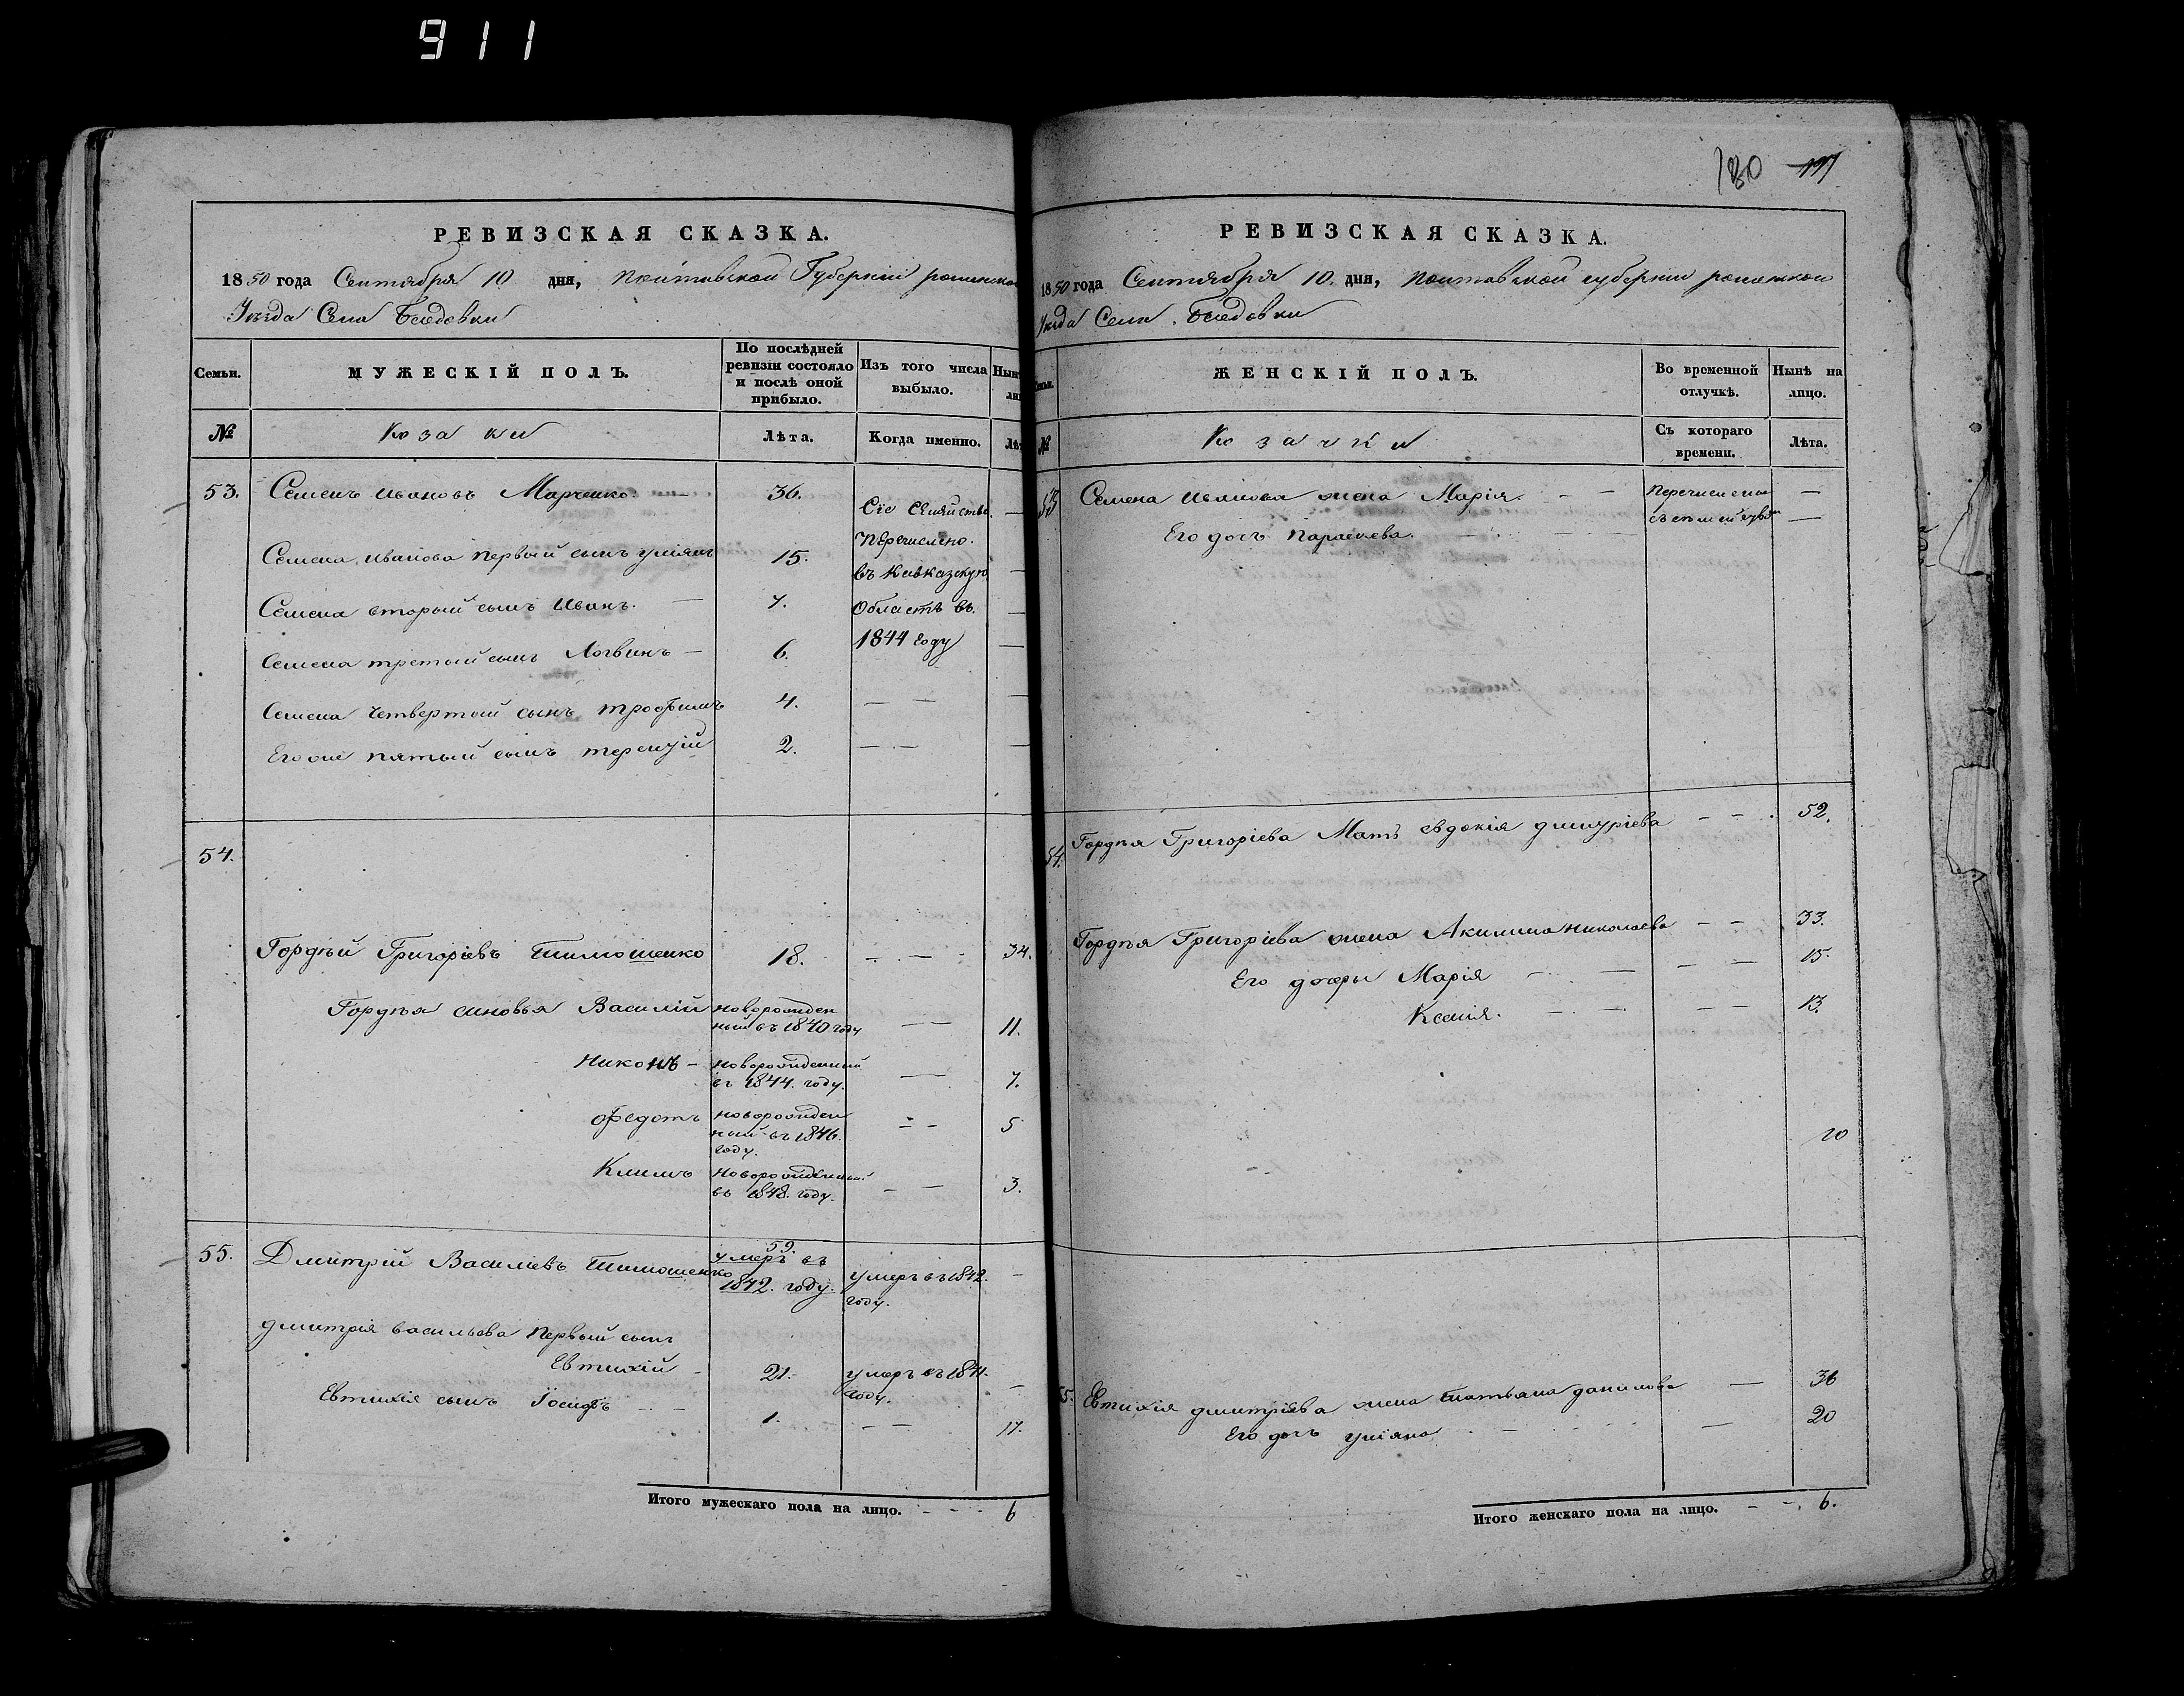 911
180 171
РЕВИЗСКАЯ СКАЗКА.
1850 года Сентября 10 дня, Полтавской Губерніи роменско
Уезда Села Беседовки
Семьи.
МУЖЕСКІЙ ПОЛЪ.
По послѣдней ревизіи состояло и послѣ оной прибыло.
Изъ того числа выбыло.
№
Козаки
Лѣта.
Когда именно.
53. Семенъ Ивановъ Марченко. — 36.
Сіе Семейство
Перечислено
въ Кавказскую
Область въ
1844 году
Семена Иванова первый сынъ Уліянъ 15.
Семена вторый сынъ Иванъ. — 7.
Семена третый сынъ Логвинъ — 6.
Семена Четвертый сынъ трофимъ 4. — —
Его же пятый сынъ терентій 2. — —
54.
Гордѣй Григоріевъ Тимошенко 18. — — 34.
Гордѣя сыновья Василій новорожден
ный въ 1840 году — — 11.
Никонъ — новорожденный
въ 1844. году. — 7.
Федотъ новорожден
ный въ 1846.
году. — — 5
Климъ Новорожденный
въ 1848. году. — — 3.
55. Дмитрій Васильевъ Тимошенко 59.
умеръ въ
1842. году.
умеръ въ 1842.
году.
дмитрія васильева первый сынъ
Евтихій — 21. умеръ въ 1841.
году.
Евтихія сынъ Іосифъ — — 1. — — 17.
Итого мужескаго пола на лицо. — — 6
РЕВИЗСКАЯ СКАЗКА.
1850 года Сентября 10. дня, Полтавской губерніи роменской
Уезда Села Беседовки
ЖЕНСКІЙ ПОЛЪ.
Во временной отлучкѣ.
Нынѣ на лицо.
№
Козачки
Съ котораго времени.
Лѣта.
53 Семена Иванова жена Марія. — —
Его дочь Параскева.
54. Гордѣя Григоріева Мать евдокія дмитріева — — 52.
Гордѣя Григоріева жена Акилина николаева — — 33.
Его дочеры Марія — — — — 15.
Ксенія. — — — — 13.
10
55. Евтихія дмитріева жена татьяна данилова — 36
Его дочь уліяна — — 20
Итого женскаго пола на лицо. — — 6.